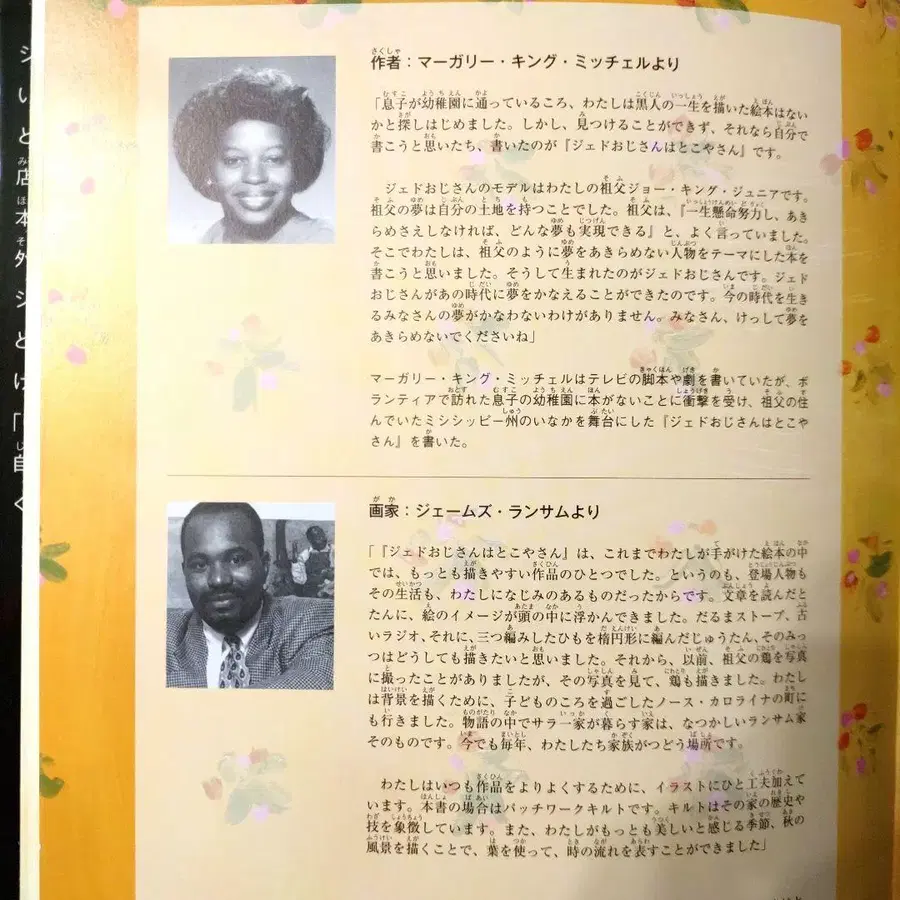 作者：マーガリー・キング・ミッチェルより
「息子が幼稚園に通っているころ、わたしは黒人の一生を描いた絵本はない
かと探しはじめました。しかし、見つけることができず、それなら自分で
書こうと思いたち、書いたのが『ジェドおじさんはとこやさん』です。
ジェドおじさんのモデルはわたしの祖父ジョー・キング・ジュニアです。
祖父の夢は自分の土地を持つことでした。祖父は、『一生懸命努力し、あき
らめさえしなければ、どんな夢も実現できる』と、よく言っていました。
そこでわたしは、祖父のように夢をあきらめない人物をテーマにした本を
書こうと思いました。そうして生まれたのがジェドおじさんです。ジェド
おじさんがあの時代に夢をかなえることができたのです。今の時代を生き
るみなさんの夢がかなわないわけがありません。みなさん、けっして夢を
あきらめないでくださいね」
マーガリー・キング・ミッチェルはテレビの脚本や劇を書いていたが、ボ
ランティアで訪れた息子の幼稚園に本がないことに衝撃を受け、祖父の住
んでいたミシシッピー州のいなかを舞台にした『ジェドおじさんはとこや
さん』を書いた。
画家：ジェームズ・ランサムより
「『ジェドおじさんはとこやさん』は、これまでわたしが手がけた絵本の中
では、もっとも描きやすい作品のひとつでした。というのも、登場人物も
その生活も、わたしになじみのあるものだったからです。文章を読んだと
たんに、絵のイメージが頭の中に浮かんできました。だるまストーブ、古
いラジオ、それに、三つ編みしたひもを楕円形に編んだじゅうたん、そのみっ
つはどうしても描きたいと思いました。それから、以前、祖父の鶏を写真
に撮ったことがありましたが、その写真を見て、鶏も描きました。わたし
は背景を描くために、子どものころを過ごしたノース・カロライナの町に
も行きました。物語の中でサラ一家が暮らす家は、なつかしいランサム家
そのものです。今でも毎年、わたしたち家族がつどう場所です。
わたしはいつも作品をよりよくするために、イラストにひと工夫加えて
います。本書の場合はパッチワークキルトです。キルトはその家の歴史や
技を象徴しています。また、わたしがもっとも美しいと感じる季節、秋の
風景を描くことで、葉を使って、時の流れを表すことができました」